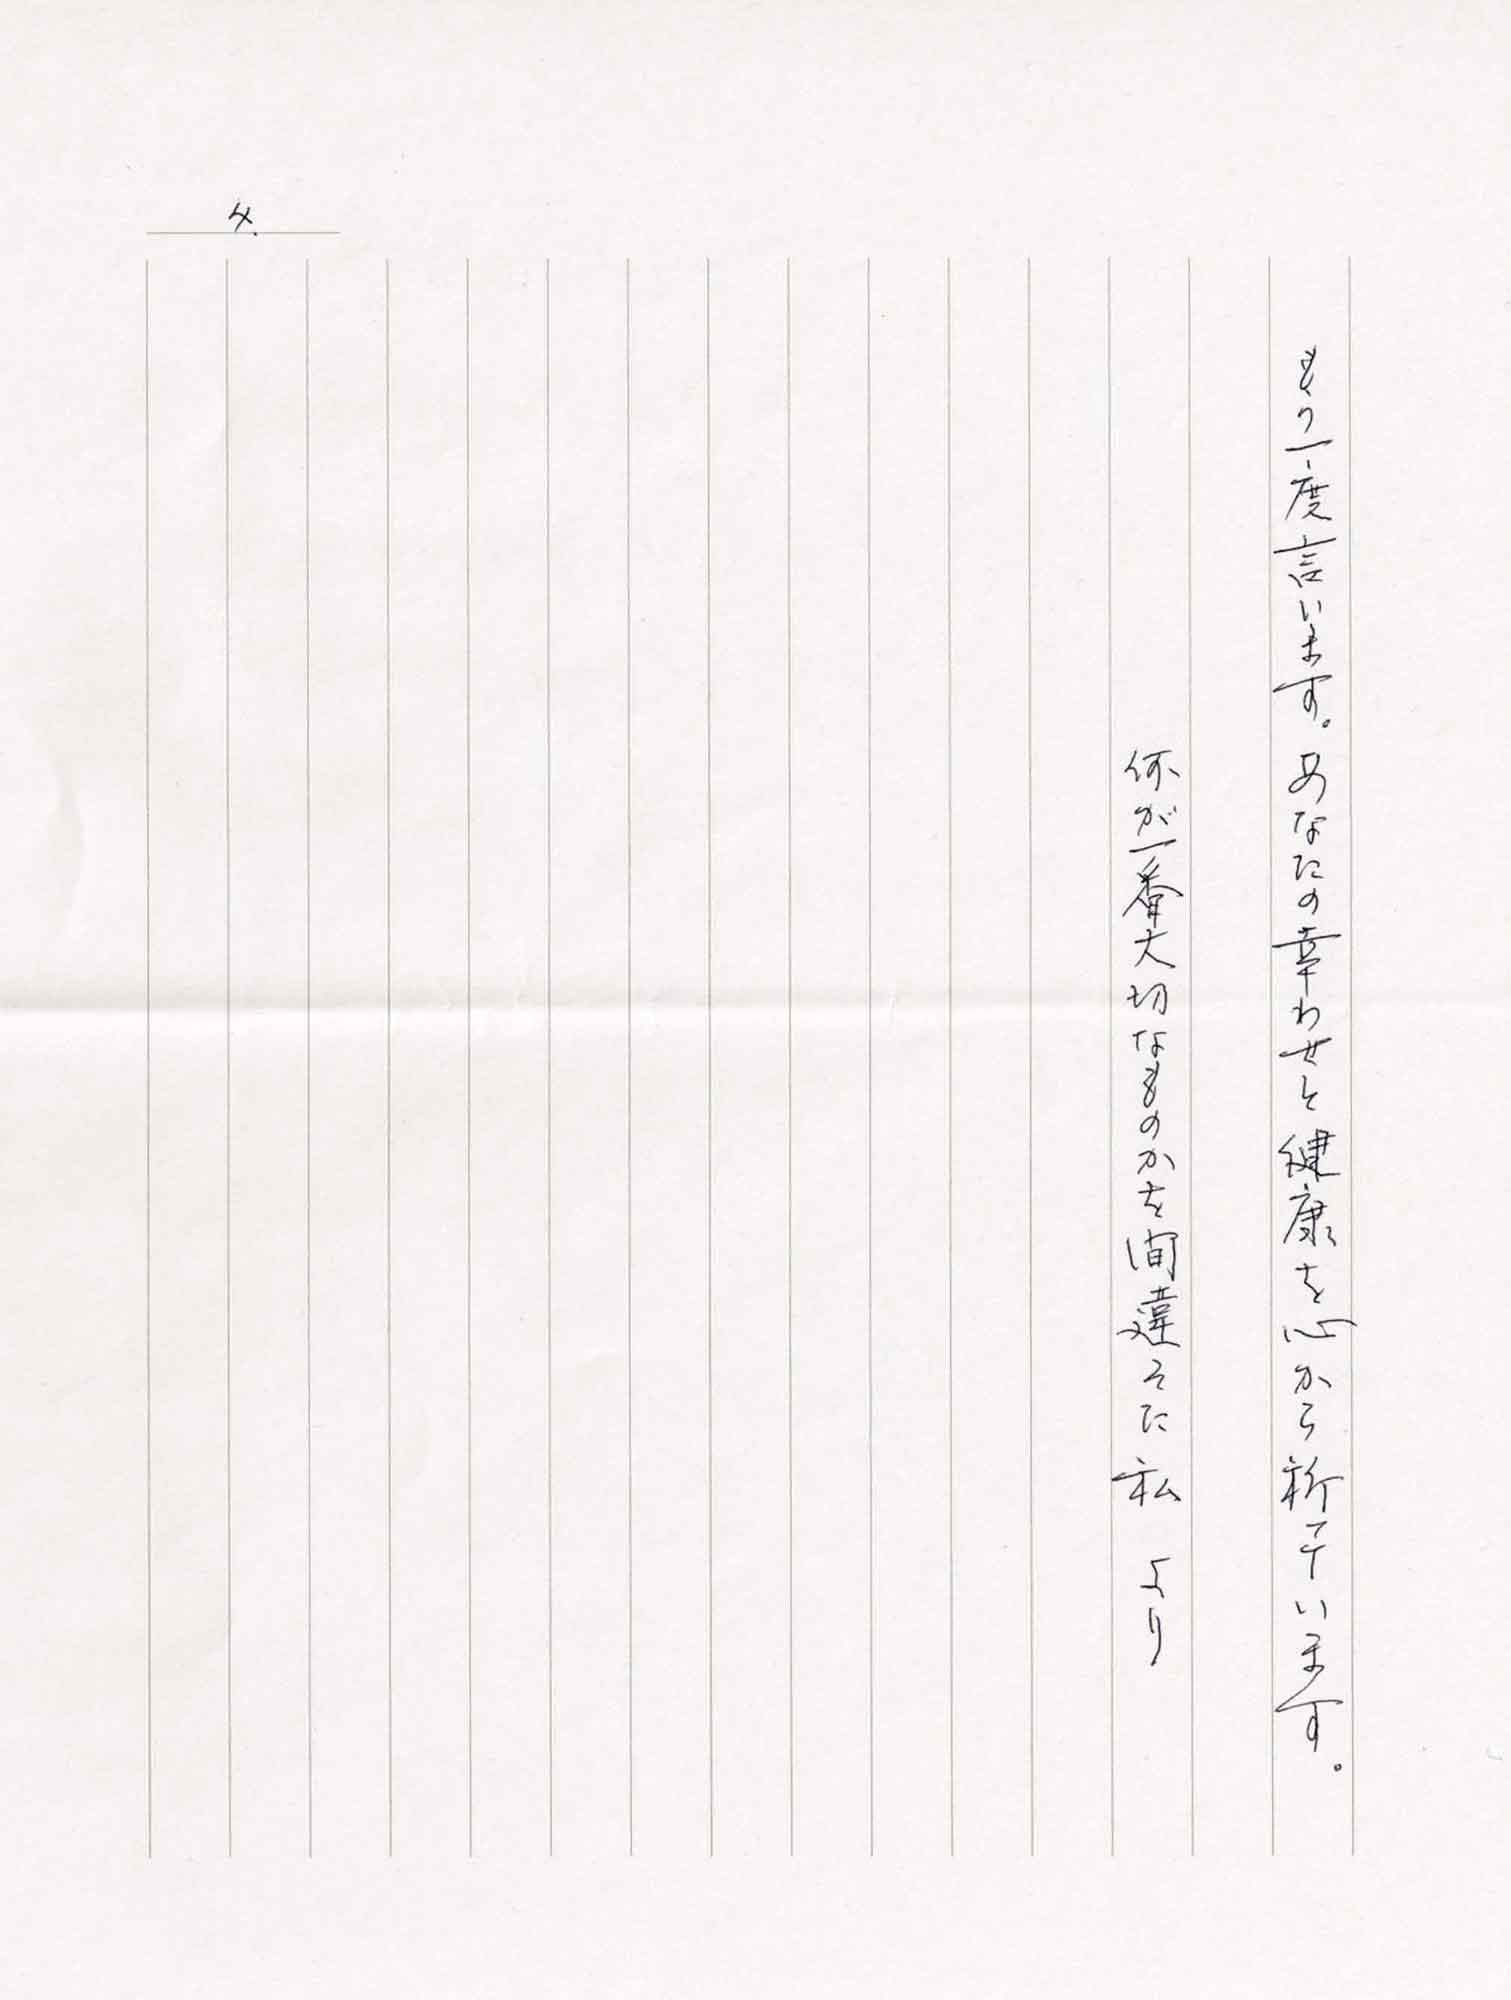 もう一度言います。あなたの幸わせと健康を心から祈ています。
何が一番大切なものかを間違えた私 より
4.